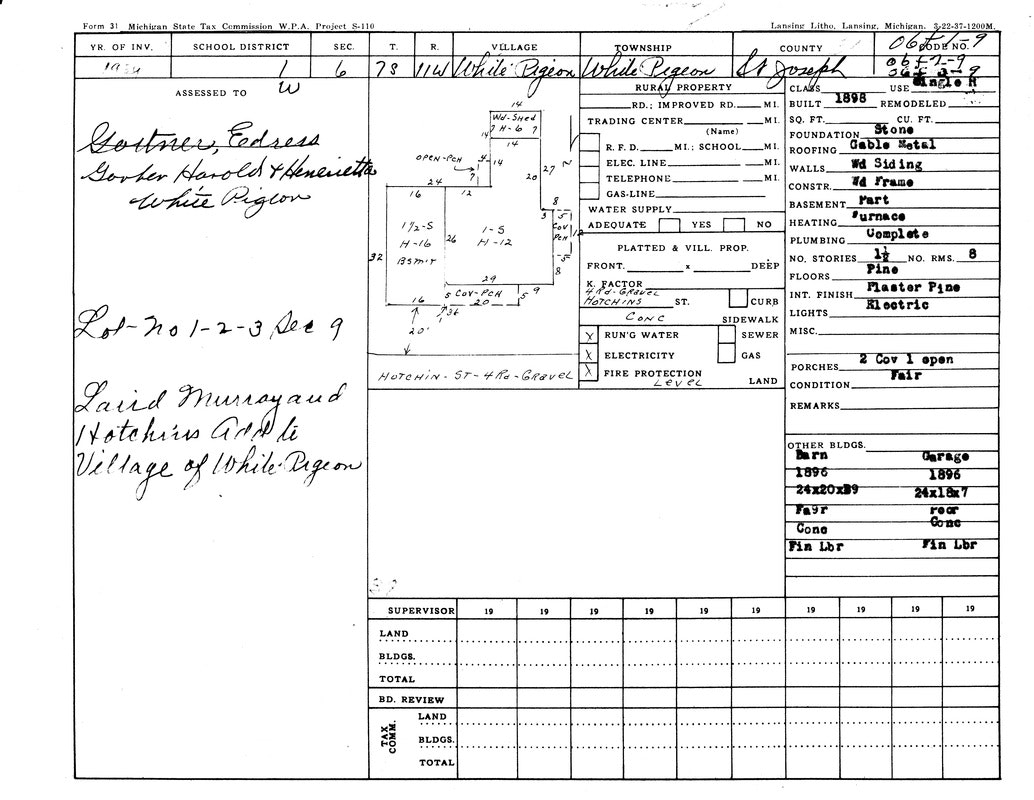 Form 31 Michigan State Tax Commission W.P.A. Project S-110
Lansing Litho, Lansing, Michigan. 3-22-37-1200M.
YR. OF INV. SCHOOL DISTRICT SEC. T. R. VILLAGE TOWNSHIP COUNTY CODE NO.
1 6 7S 11W White Pigeon White Pigeon St Joseph
W
ASSESSED TO
Gostner, Edress
Harold & Henrietta
White Pigeon
Lot-No 1-2-3 Sec 9
Laird Murray and
Hotchins Add to
Village of White Pigeon
14
Wd-Shed
7 H-6 7
14
14
OPEN-PCH
4
14
7
27
20
N
24
16
12
8
3
5
COV
PCH
12
5
8
1 1/2-S
H-16
Bsmt
26
1-S
H-12
32
29
9
5 COV-PCH 5
16
20
20'
HOTCHIN-ST-4 Rd-GRAVEL
RURAL PROPERTY
RD.; IMPROVED RD. MI.
TRADING CENTER MI.
(Name)
R. F. D. MI.; SCHOOL MI.
ELEC. LINE MI.
TELEPHONE MI.
GAS-LINE
WATER SUPPLY
ADEQUATE YES NO
PLATTED & VILL. PROP.
FRONT. x DEEP
K. FACTOR
4 Rd-GRAVEL
HOTCHINS ST. CURB
CONC SIDEWALK
X RUN'G WATER SEWER
X ELECTRICITY GAS
X FIRE PROTECTION
LEVEL LAND
CLASS USE Single R
BUILT 1898 REMODELED
SQ. FT. CU. FT.
FOUNDATION Stone
ROOFING Gable Metal
WALLS Wd Siding
CONSTR. Wd Frame
BASEMENT Part
HEATING Furnace
PLUMBING Complete
NO. STORIES 1½ NO. RMS. 8
FLOORS Pine
INT. FINISH Plaster Pine
LIGHTS Electric
MISC.
PORCHES 2 Cov 1 open
CONDITION Fair
REMARKS
OTHER BLDGS.
Barn Garage
1896 1896
24x20x 24x18x7
Conc Conc
Fin Lbr Fin Lbr
SUPERVISOR 19 19 19 19 19 19 19 19 19 19
LAND
BLDGS.
TOTAL
BD. REVIEW
TAX COMM.
LAND
BLDGS.
TOTAL